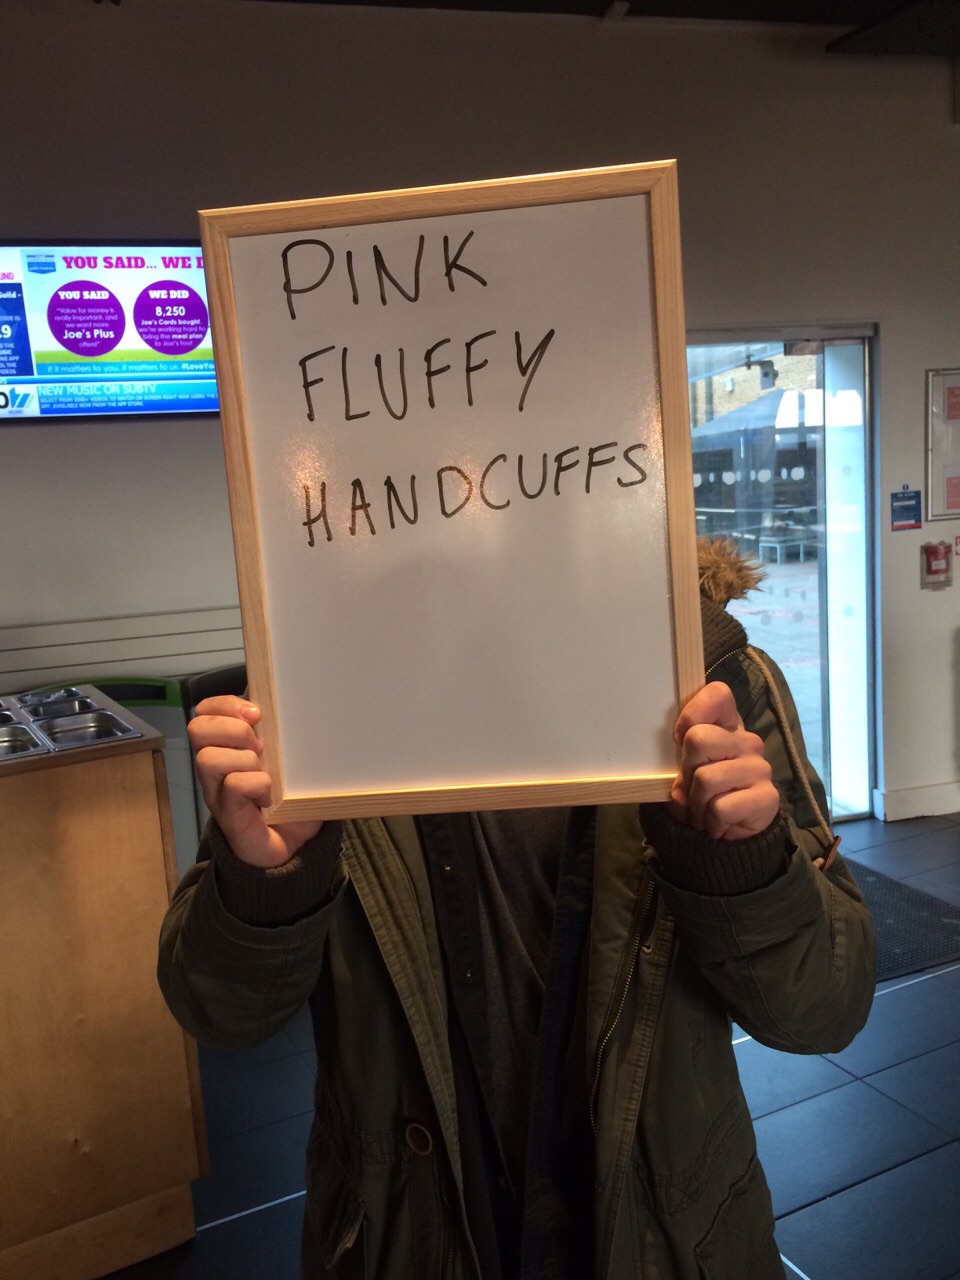 PINK
FLUFFY
HANDCUFFS
YOU SAID... WE D
YOU SAID
"Value for money is
really important, and
we want more
Joe's Plus
offers!"
WE DID
8,250
Joe's Cards bought,
we're working hard to
bring the meal plan
to Joe's too!
If it matters to you, it matters to us. #LoveYo
NEW MUSIC ON SUBTV